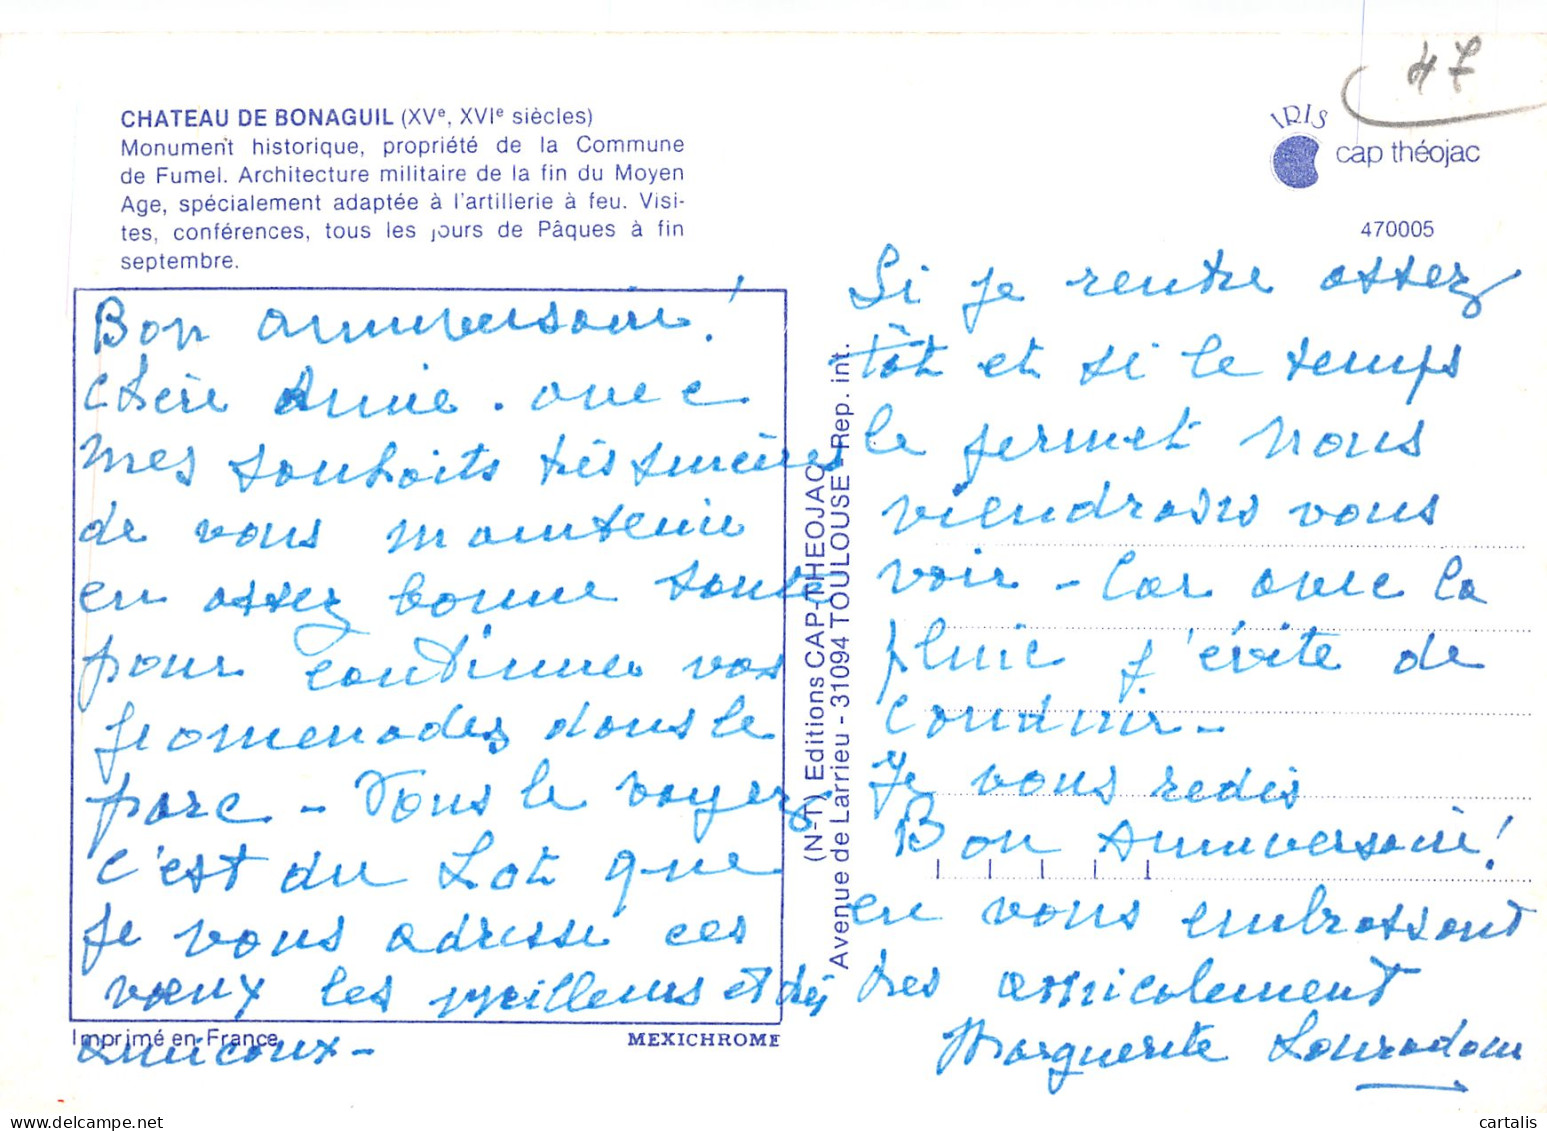 47
CHATEAU DE BONAGUIL (XVe, XVIe siècles)
Monument historique, propriété de la Commune
de Fumel. Architecture militaire de la fin du Moyen
Age, spécialement adaptée à l'artillerie à feu. Visi-
tes, conférences, tous les jours de Pâques à fin
septembre.
IRIS
cap théojac
470005
Bon anniversaire!
Chère Amie. avec
mes souhaits très sincères
de vous maintenir
en assez bonne santé
pour continuer vos
promenades dans le
parc - Vous le voyez
c'est du Lot que
je vous adresse ces
voeux les meilleurs et très
amicaux -
Imprimé en France
MEXICHROME
(N-1) Editions CAP-THEOJAC
Avenue de Larrieu - 31094 TOULOUSE - Rep. int.
Si je rentre assez
tôt et si le temps
le permet nous
viendrons vous
voir - Car avec la
pluie j'évite de
conduire -
Je vous redis
Bon anniversaire!
en vous embrassant
très amicalement
Marguerite
cartalis